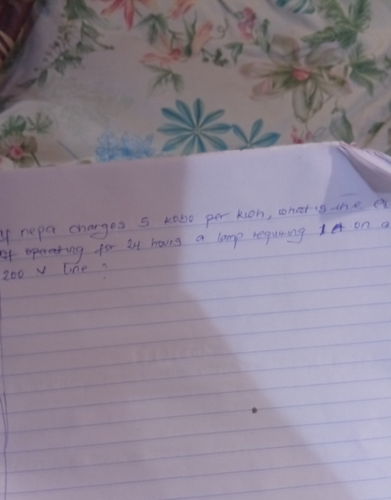 If nepa charges 5 kobo per kWh, what is the
of operating for 24 hours a lamp requiring 1A on a
200 V line ?